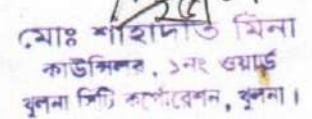 মোঃ শাহাদাত মিনা
কাউন্সিলর, ১নং ওয়ার্ড
খুলনা সিটি কর্পোরেশন, খুলনা।